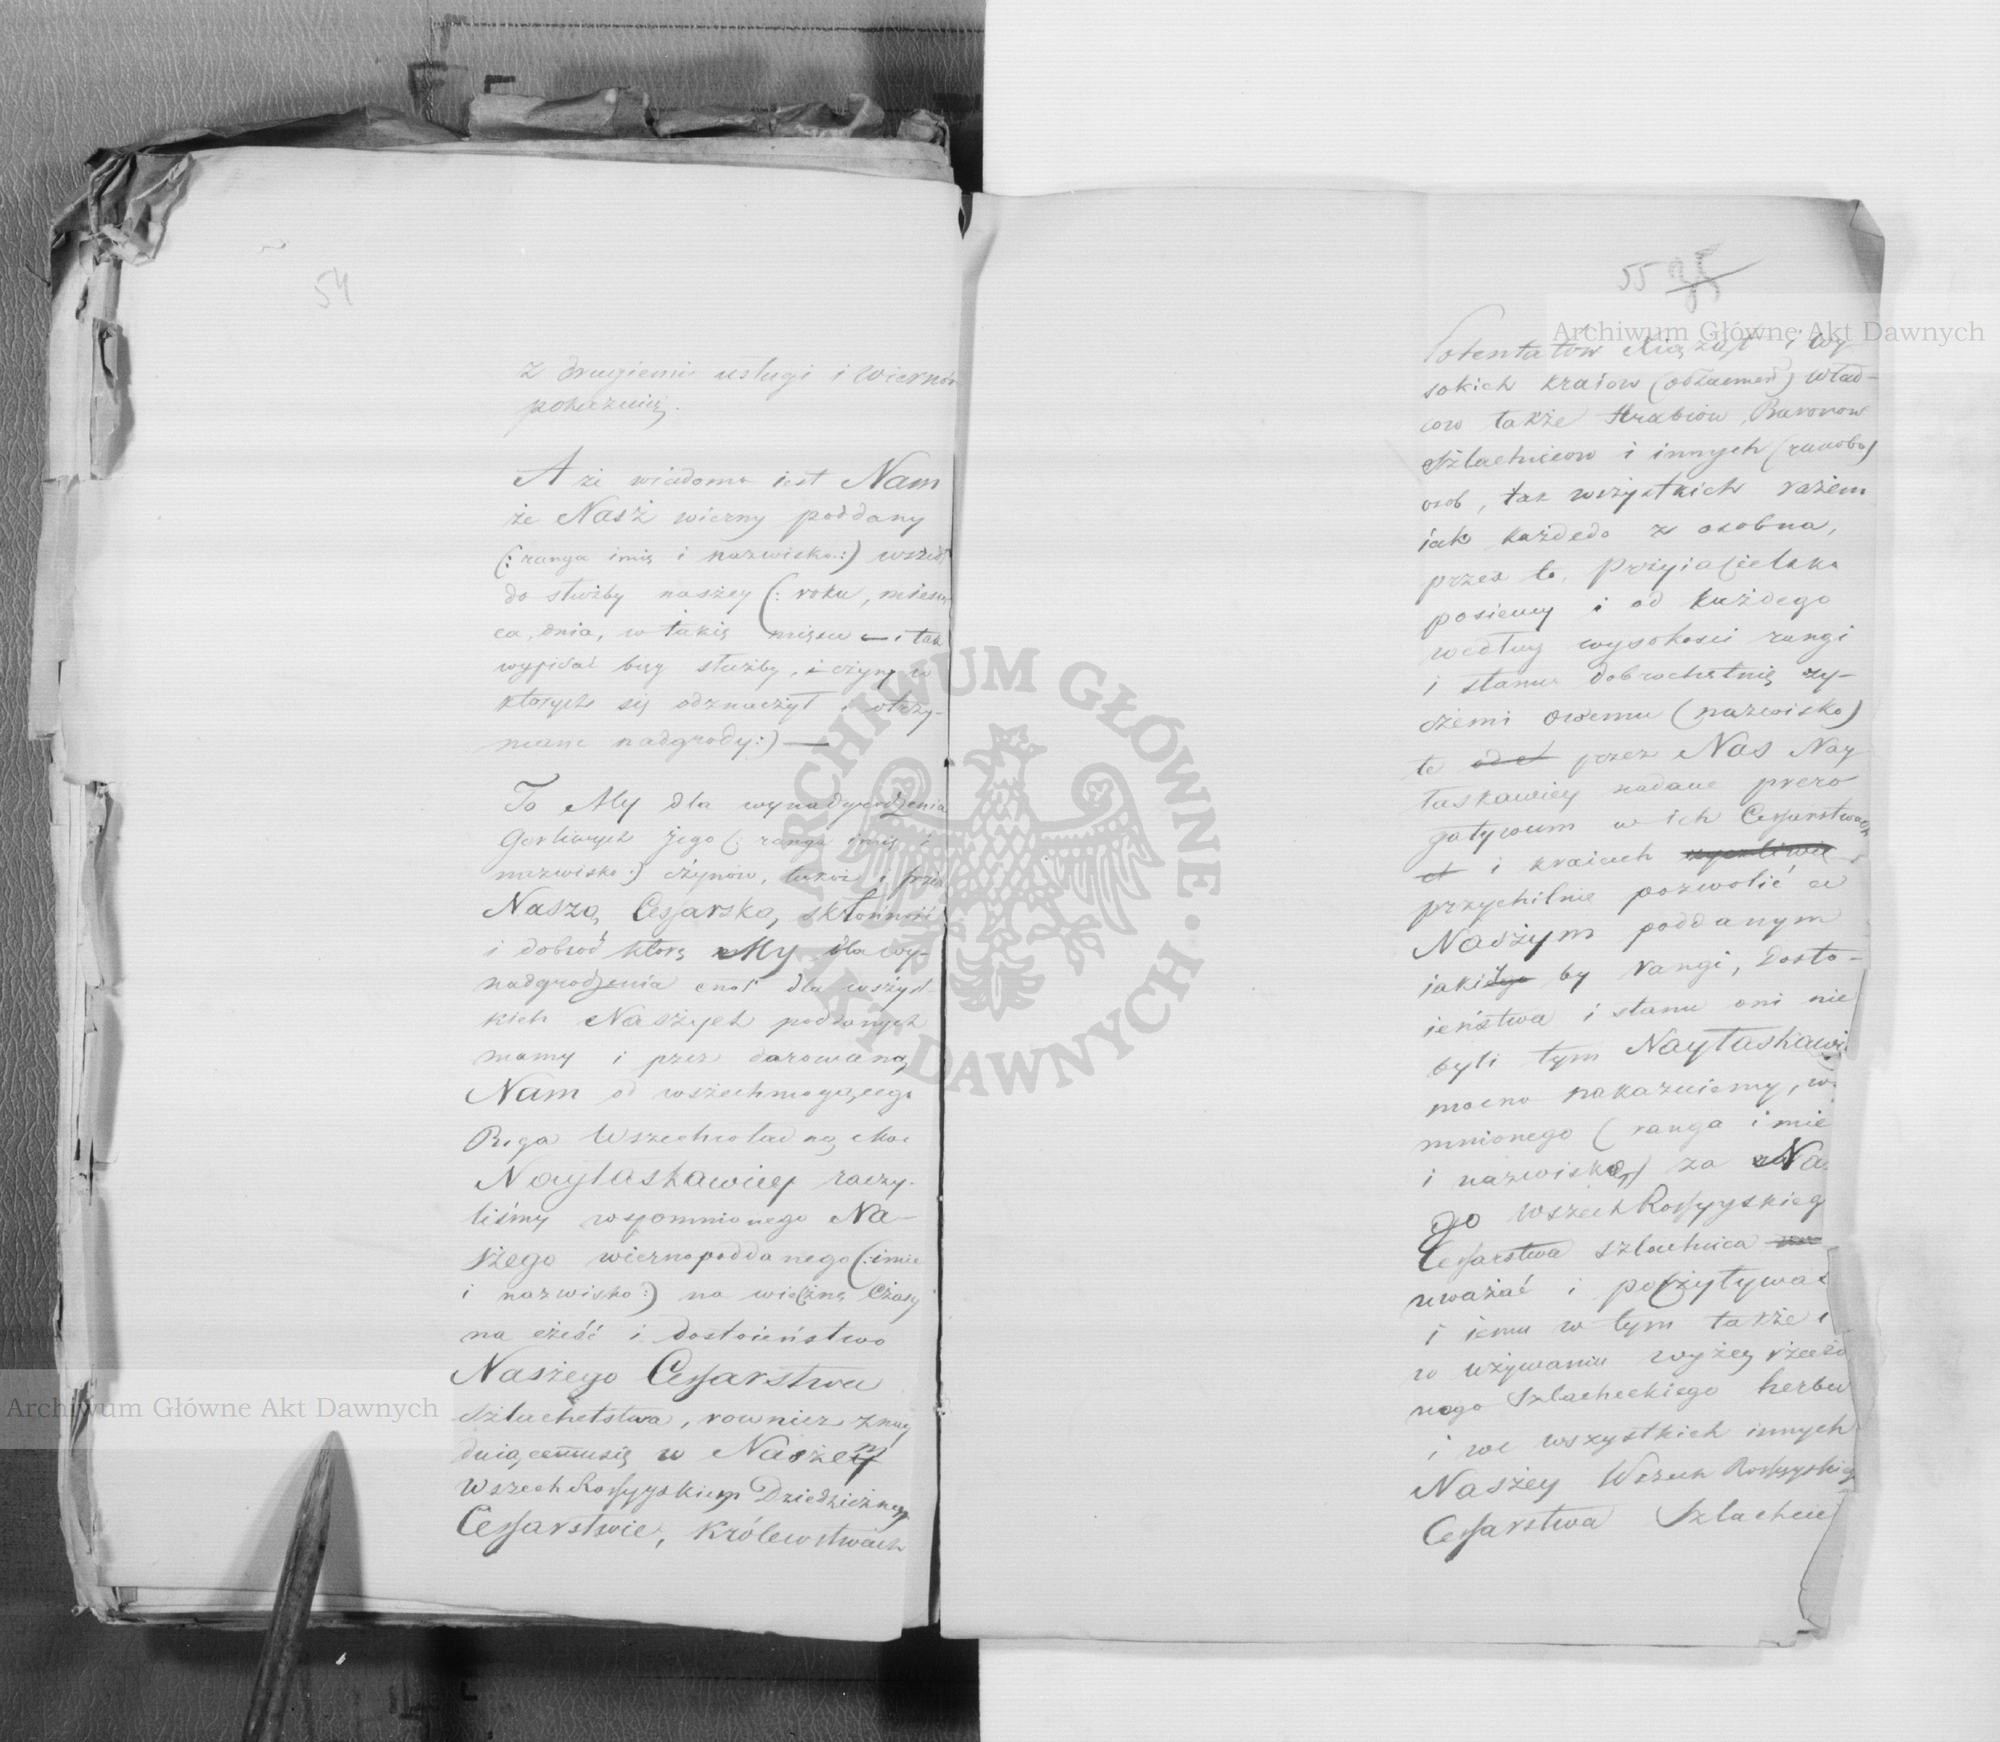 54
z drugiemi usługi i wiernos
pokaznię.
A że wiadomo iest Nam
że Nasz wierny poddany
(: ranga imię i nazwisko :) wszedł
do służby naszey (: roku, miesią
ca, dnia, w takię mięscu — i tak
wypisać bieg służby, i czyny w
ktorych się odznaczył i otrzy-
mane nadgrody :) —
To My dla wynadgrodzenia
Gorliwych jego (: ranga imię i
nazwisko :) czynow, tudzież i przez
Naszą Cesarską skłonność
i dobroć ktorą My dla wy-
nadgrodzenia cnot dla wszyst-
kich Naszych poddanych
mamy i przez darowaną
Nam od wszechmogącego
Boga Wszechwładną Moc
Nayłaskawiey raczy-
liśmy wspomnionego Na-
szego wiernopoddanego (: imie
i nazwisko :) na wieczne Czasy
na cześć i dostoieństwo
Naszego Cessarstwa
Szlachetstwa, rownież znay
duiącemusię w Naszem
WszechRossyyskiem Dziedzicznem
Cessarstwie, Królewstwach
55
Potentatow Xiążąt i Wy-
sokich kraiow (obłasnieɉ) Wład-
cow także Hrabiow, Baronow
Szlachcicow i innych
osob, tak wszystkich razem
iak każdedo z osobna,
przez to, Przyiacielsko
posiemy i od każdego
według wysokosci rangi
i stanu dobrochetnię zy-
czemi owemu (nazwisko)
te od przez Nas Nay
łaskawiey nadane prero
gatywum w ich Cessarstwach
i kraiach
przychilnie pozwolić a
Naszym poddanym
iakieyo by rangi, Dosto-
ieństwa i stanu oni nie
byli tym Nayłaskawi
mocno nakazuiemy, w
mnionego (ranga i mie
i nazwisko) za Na
go WszechRossyyskieg
Cessarstwa szlachcica
uważać i poczytywać
i iemu w tym także i
w używaniu wyżey rzeczo
nego Szlacheckiego herbu
i we wszystkich innych
Naszey Wszech Rossyyskiey
Cessarstwa Szlachcie
Archiwum Główne Akt Dawnych
Archiwum Główne Akt Dawnych
· ARCHIWUM GŁÓWNE · AKT DAWNYCH